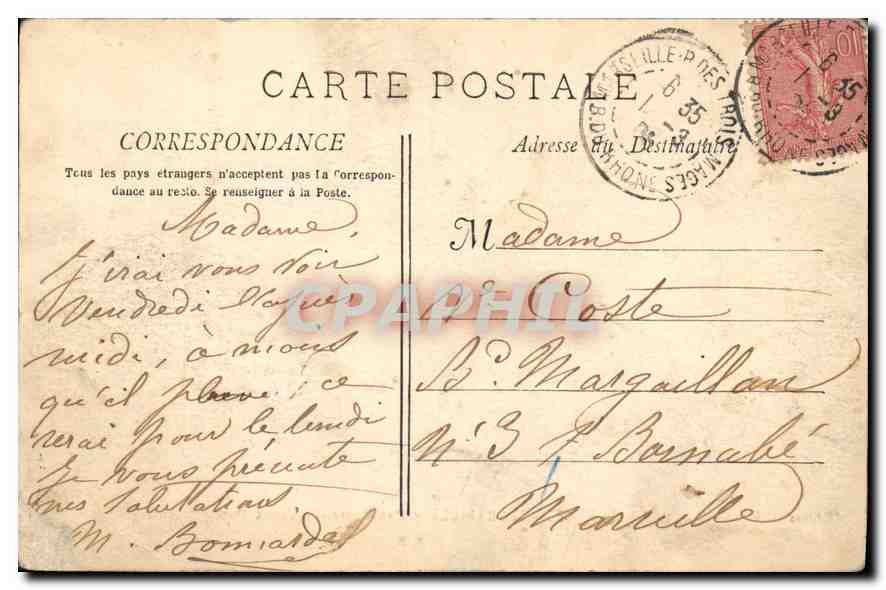 CARTE POSTALE
CORRESPONDANCE
Tous les pays étrangers n'acceptent pas la correspon-
dance au recto. Se renseigner à la Poste.
Adresse du Destinataire
Madame,
J'irai vous voir
Vendredi l'après
midi, à moins
qu'il pleuve, ce
serai pour le lundi
Je vous présente
mes Salutations
M.
Madame
Coste
Bd Margaillan
N° 3 St Barnabé
Marseille
MARSEILLE - P. DES TROIS MAGES
B. DU RHONE
6 35
10
CPAPHIL